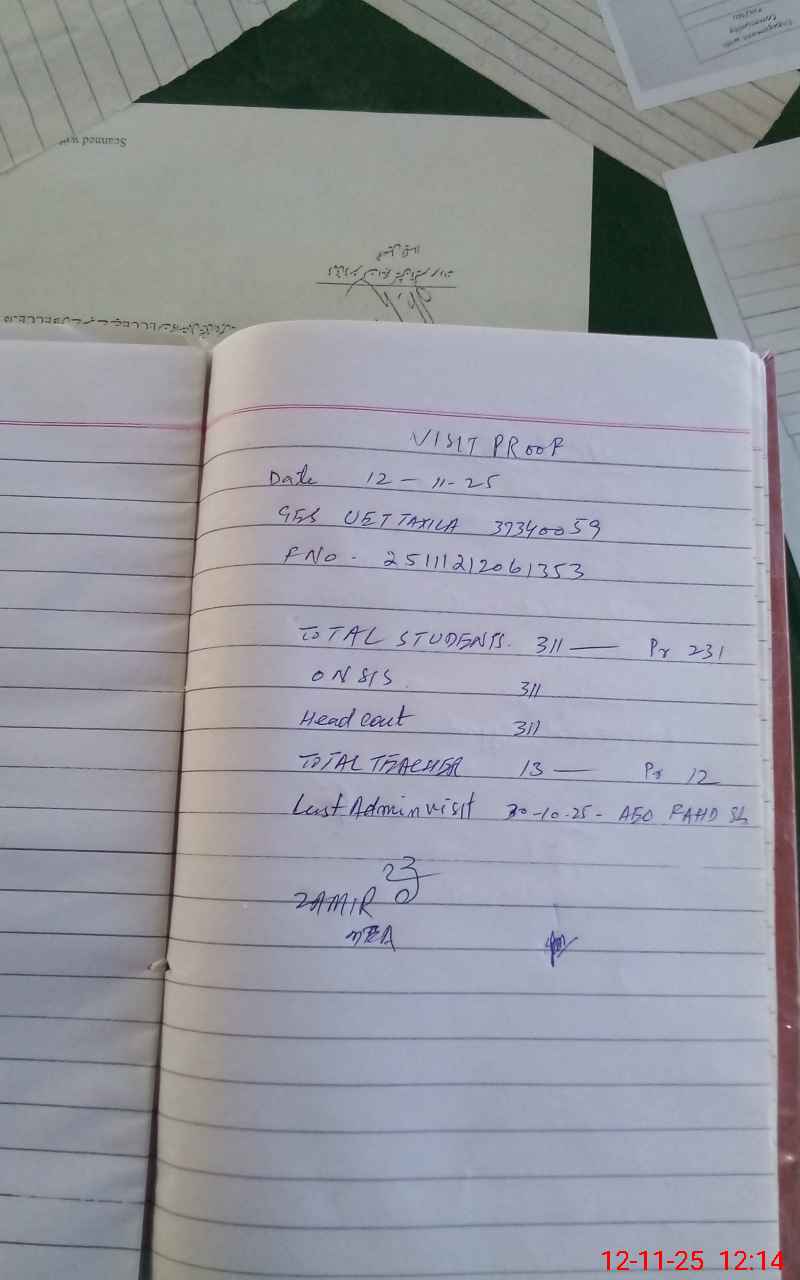 Engagement with
community
Scanned with
VISIT PROOF
Date 12 - 11-25
GES UET TAXILA 37340059
F No - 25111212061353
TOTAL STUDENTS. 311 — Pr 231
ON SIS. 311
Head cout 311
TOTAL TEACHER 13 — Pr 12
Last Admin visit 30-10-25 - AEO FAHD Sb
ZAMIR
MEA
12-11-25 12:14